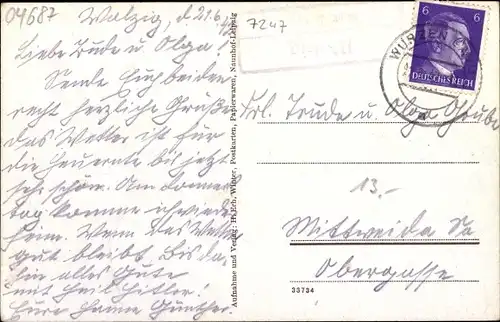 04687
Walzig, d. 21.6.
Liebe Trude u. Olga!
Sende Euch beiden
recht herzliche Grüße
das Wetter ist für
die Heuernte bis jetzt
sehr schön. Am Donners
tag komme ich wieder
heim. Wenn das Wetter
gut bleibt. Bis da-
hin alles Gute
mit Heil Hitler!
Eure Hanne Günther.
Aufnahme und Verlag: H. Erh. Winter, Postkarten, Papierwaren, Naunhof-Leipzig
7247
6 6
DEUTSCHES REICH
WURZEN
Frl. Trude u. Olga Grube
13.-
Mittweida Sa
Obergasse
33734